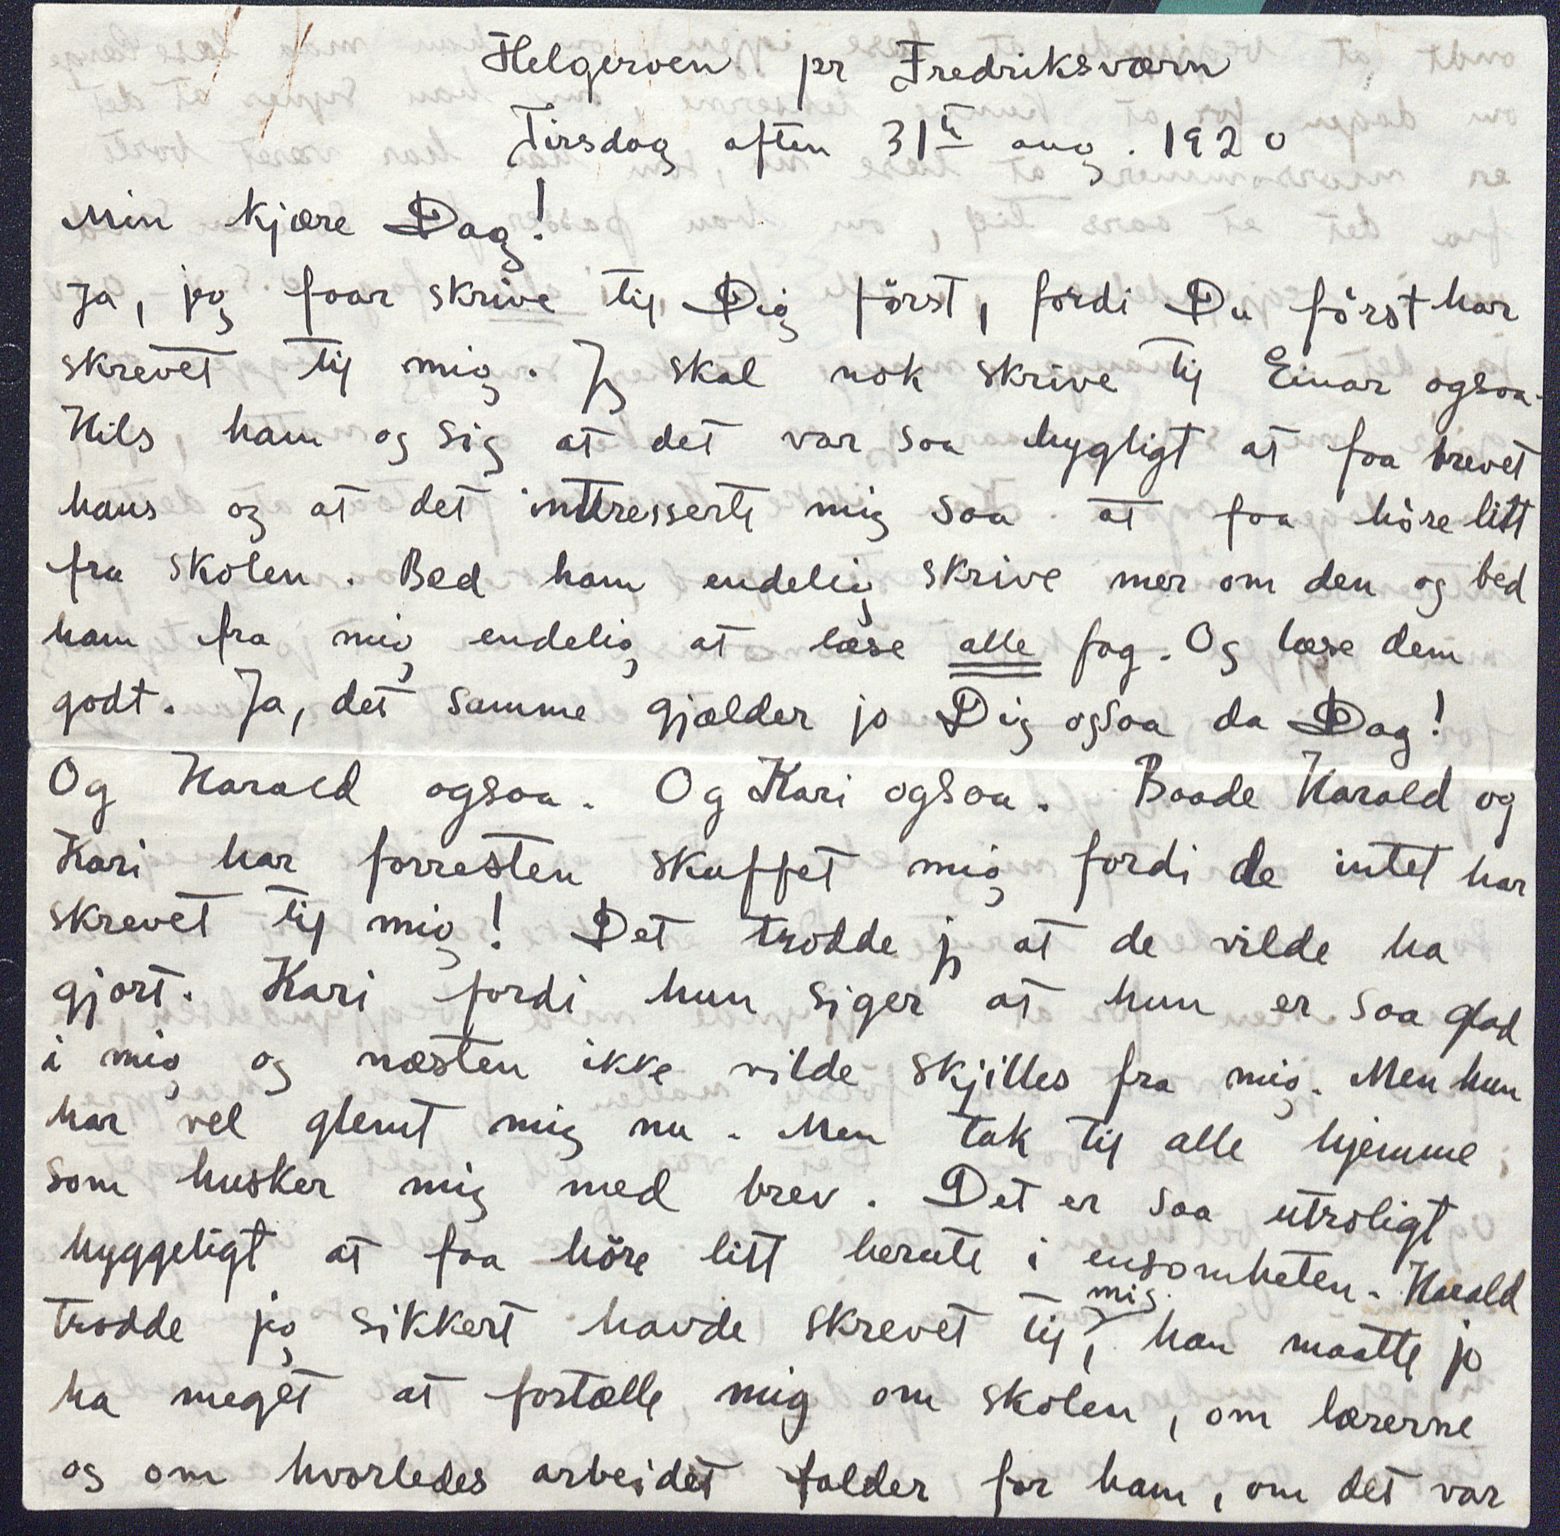 Helgeroen pr Fredriksværn
Tirsdag aften 31te aug. 1920
Min kjære Dag!
Ja, jeg faar skrive til Dig først, fordi Du først har
skrevet til mig. Jeg skal nok skrive til Einar ogsaa.
Hils ham og sig at det var saa hygligt at faa brevet
hans og at det interesserte mig saa at faa høre litt
fra skolen. Bed ham endelig skrive mer om den og bed
ham fra mig endelig at læse alle fag. Og læse dem
godt. Ja, det samme gjælder jo Dig ogsaa da Dag!
Og Harald ogsaa. Og Kari ogsaa. Baade Harald og
Kari har forresten skuffet mig fordi de intet har
skrevet til mig! Det trodde jeg at de vilde ha
gjort. Kari fordi hun siger at hun er saa glad
i mig og næsten ikke vilde skjilles fra mig. Men hun
har vel glemt mig nu. Men tak til alle hjemme,
som husker mig med brev. Det er saa utroligt
hyggeligt at faa høre litt herute i ensomheten. Harald
trodde jeg sikkert havde skrevet til mig, han maatte jo
ha meget at fortælle mig om skolen, om lærerne
og om hvorledes arbeidet falder for ham, om det var